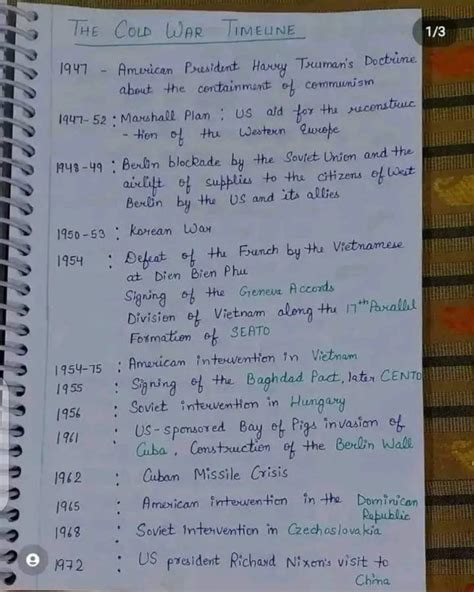 THE COLD WAR TIMELINE
1/3
1947 - American President Harry Truman's Doctrine
about the containment of communism
1947-52 : Marshall Plan : US aid for the reconstruc
-tion of the Western Europe
1948-49 : Berlin blockade by the Soviet Union and the
airlift of supplies to the citizens of West
Berlin by the US and its allies
1950-53 : Korean War
1954 : Defeat of the French by the Vietnamese
at Dien Bien Phu
Signing of the Geneva Accords
Division of Vietnam along the 17th Parallel
Formation of SEATO
1954-75 : American intervention in Vietnam
1955 : Signing of the Baghdad Pact, later CENTO
1956 : Soviet intervention in Hungary
1961 : US-sponsored Bay of Pigs invasion of
Cuba, Construction of the Berlin Wall
1962 : Cuban Missile Crisis
1965 : American intervention in the Dominican
Republic
1968 : Soviet Intervention in Czechoslovakia
1972 : US president Richard Nixon's visit to
China